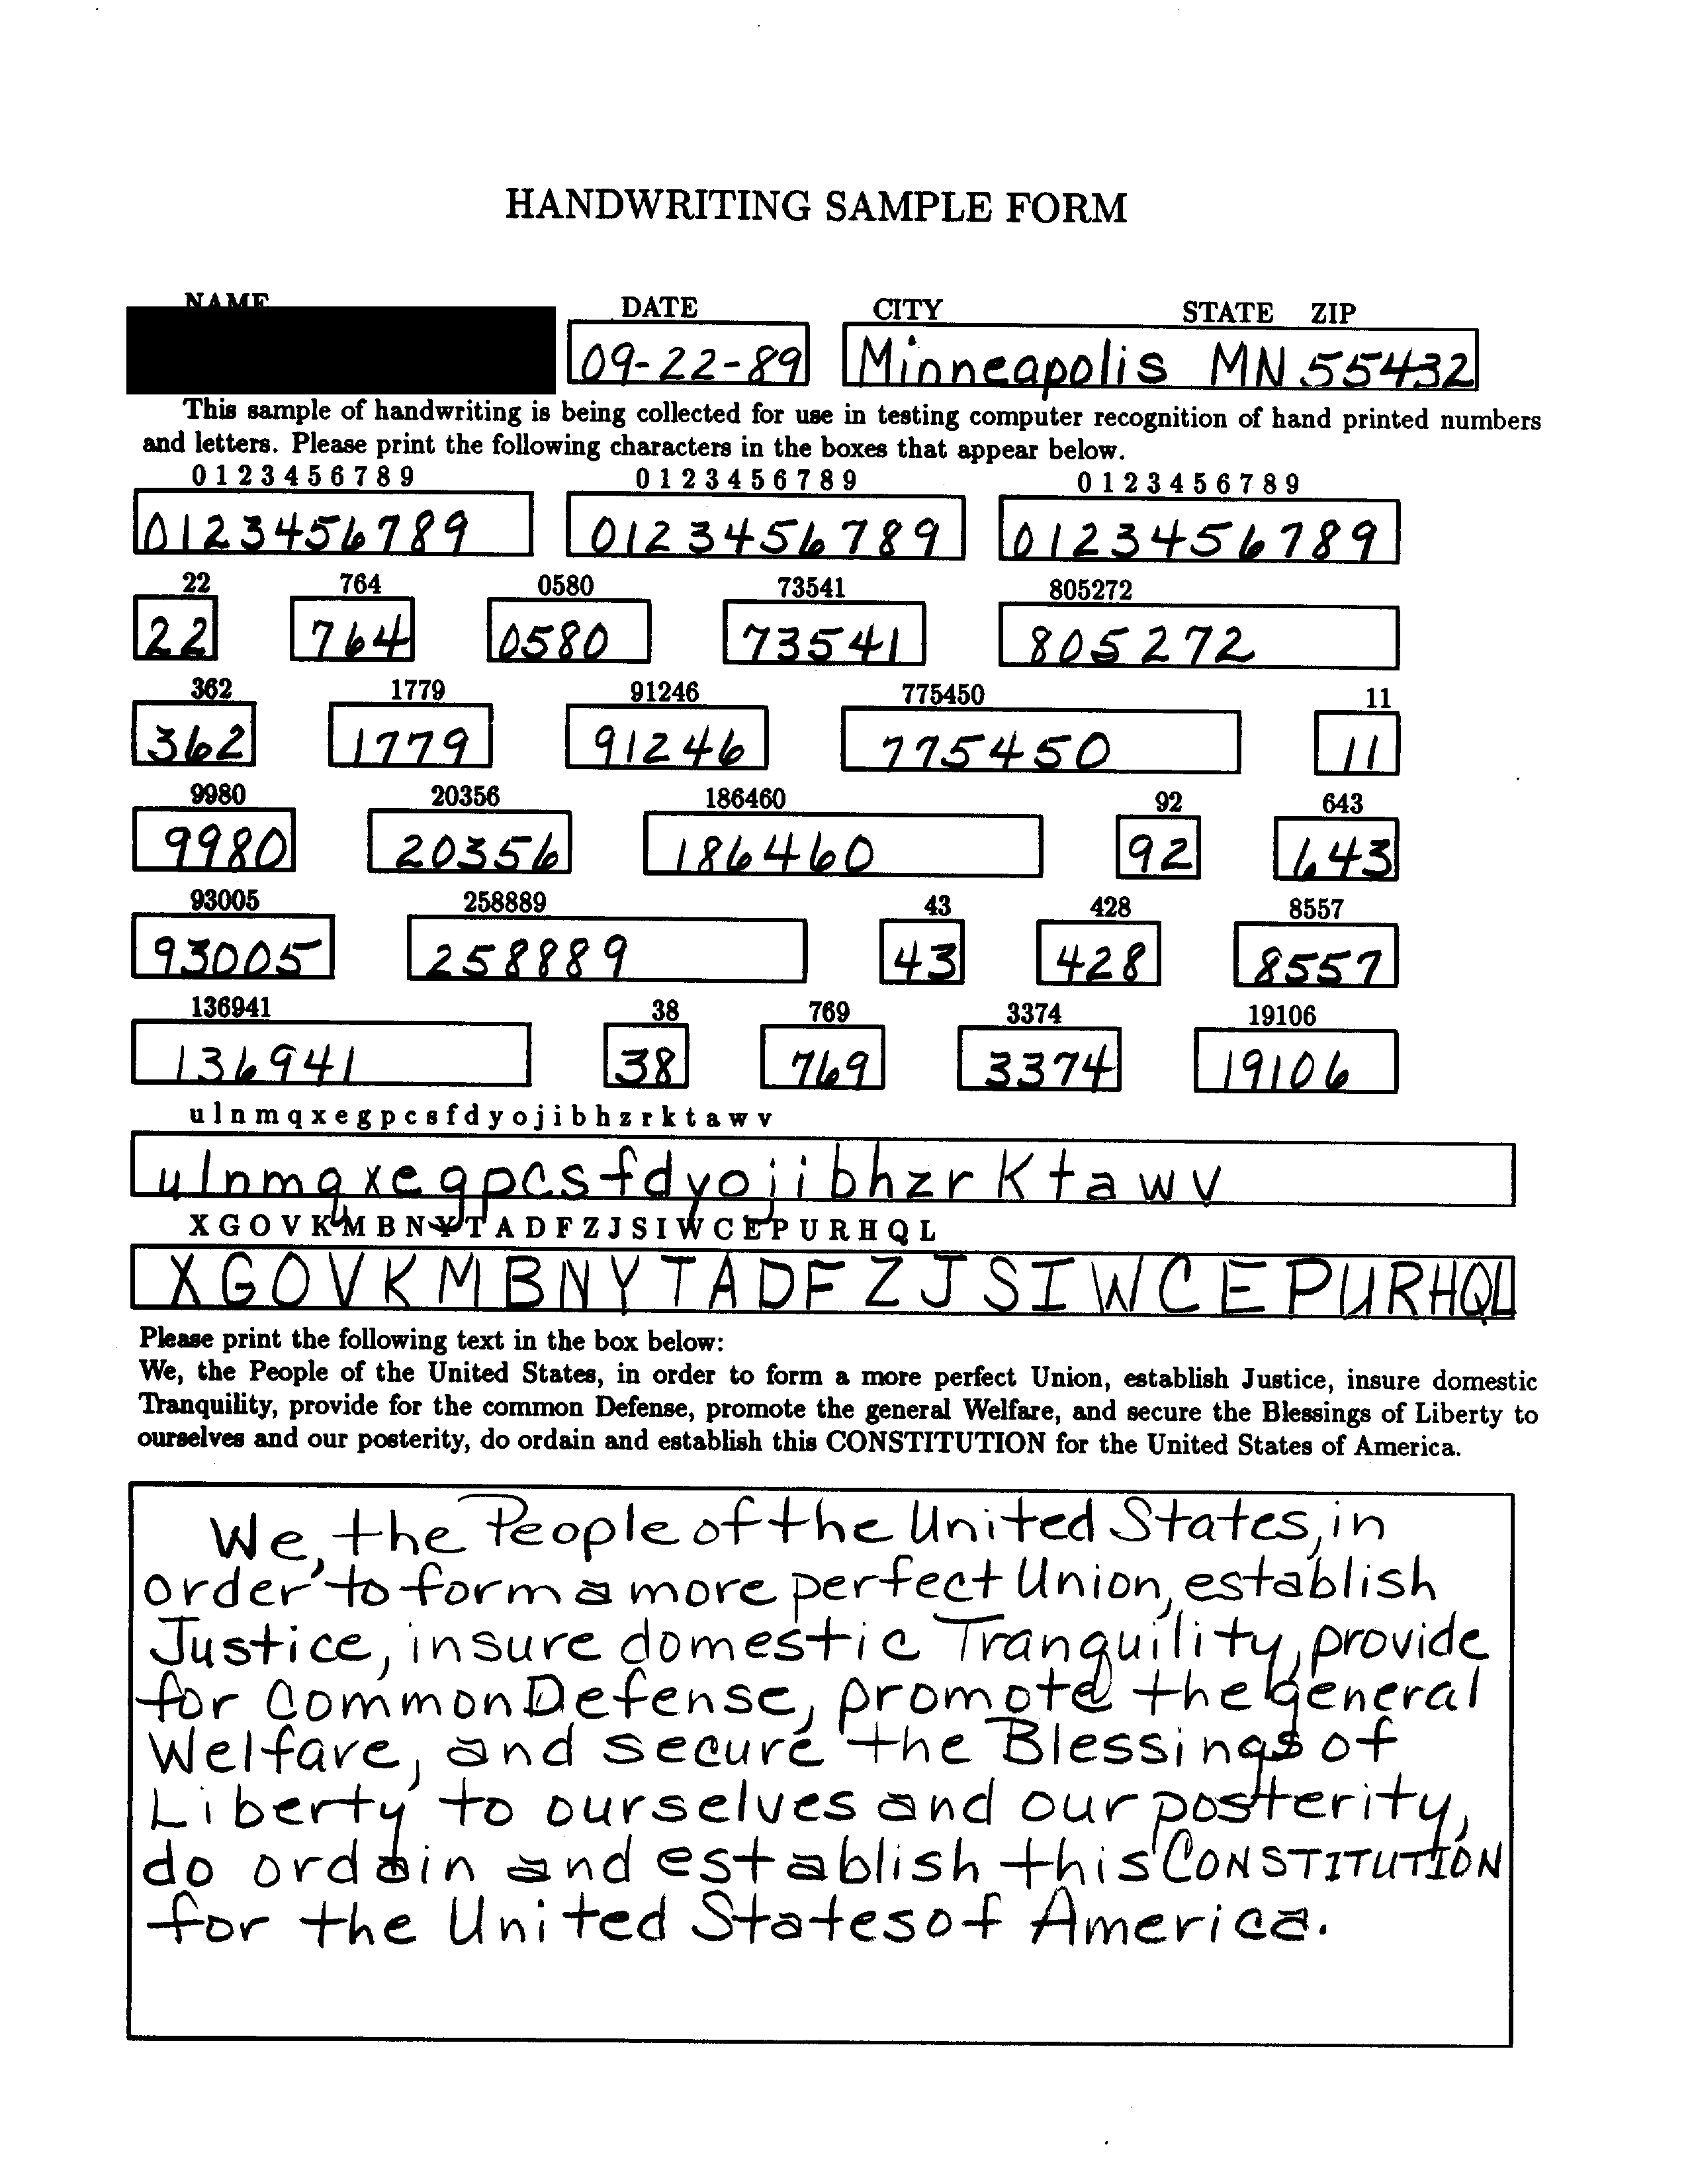 HANDWRITING SAMPLE FORM
NAME DATE CITY STATE ZIP
09-22-89 Minneapolis MN 55432
This sample of handwriting is being collected for use in testing computer recognition of hand printed numbers
and letters. Please print the following characters in the boxes that appear below.
0 1 2 3 4 5 6 7 8 9 0 1 2 3 4 5 6 7 8 9 0 1 2 3 4 5 6 7 8 9
0123456789 0123456789 0123456789
22 764 0580 73541 805272
22 764 0580 73541 805272
362 1779 91246 775450 11
362 1779 91246 775450 11
9980 20356 186460 92 643
9980 20356 186460 92 643
93005 258889 43 428 8557
93005 258889 43 428 8557
136941 38 769 3374 19106
136941 38 769 3374 19106
u l n m q x e g p c s f d y o j i b h z r k t a w v
ulnmqxegpcsfdyojibhzrKtawv
X G O V K M B N Y T A D F Z J S I W C E P U R H Q L
XGOVKMBNYTADFZJSIWCEPURHQL
Please print the following text in the box below:
We, the People of the United States, in order to form a more perfect Union, establish Justice, insure domestic
Tranquility, provide for the common Defense, promote the general Welfare, and secure the Blessings of Liberty to
ourselves and our posterity, do ordain and establish this CONSTITUTION for the United States of America.
We, the People of the United States, in
order to form a more perfect Union, establish
Justice, insure domestic Tranquility, provide
for Common Defense, promote the general
Welfare, and secure the Blessings of
Liberty to ourselves and our posterity,
do ordain and establish this CONSTITUTION
for the United States of America.